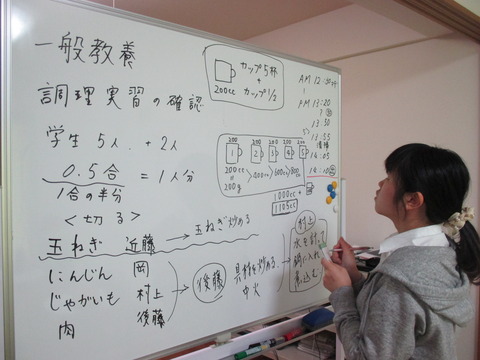 一般教養
調理実習の確認
学生 5人 + 2人
0.5合 = 1人分
1合の半分
<切る>
玉ねぎ 近藤 → 玉ねぎ炒める
にんじん 岡
じゃがいも 村上
肉 後藤
後藤 具材を炒める
中火
村上
水を計って
鍋に入れ
煮込む
200cc
カップ5杯
+
カップ1/2
200 200 200 200 200
1 2 3 4 5
200cc 400cc 600cc 800cc
=
200g
1000cc +
1105cc
AM 12:30
PM 13:20
13:30
13:55
14:05
14:10